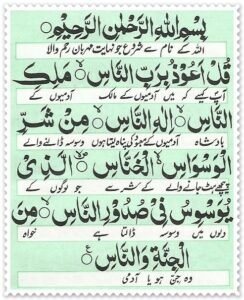 بِسْمِ اللهِ الرَّحْمٰنِ الرَّحِيْمِ
اللہ کے نام سے شروع جو نہایت مہربان رحم والا
قُلْ اَعُوْذُ بِرَبِّ النَّاسِ مَلِكِ
آپ کہیے کہ میں آدمیوں کے مالک آدمیوں کے
النَّاسِ اِلٰهِ النَّاسِ مِنْ شَرِّ
بادشاہ آدمیوں کے معبود کی پناہ لیتا ہوں وسوسہ ڈالنے والے
الْوَسْوَاسِ الْخَنَّاسِ الَّذِيْ
پیچھے ہٹ جانے والے کے شر سے جو لوگوں کے
يُوَسْوِسُ فِيْ صُدُوْرِ النَّاسِ مِنَ
دلوں میں وسوسہ ڈالتا ہے خواہ
الْجِنَّةِ وَالنَّاسِ
وہ جن ہو یا آدمی